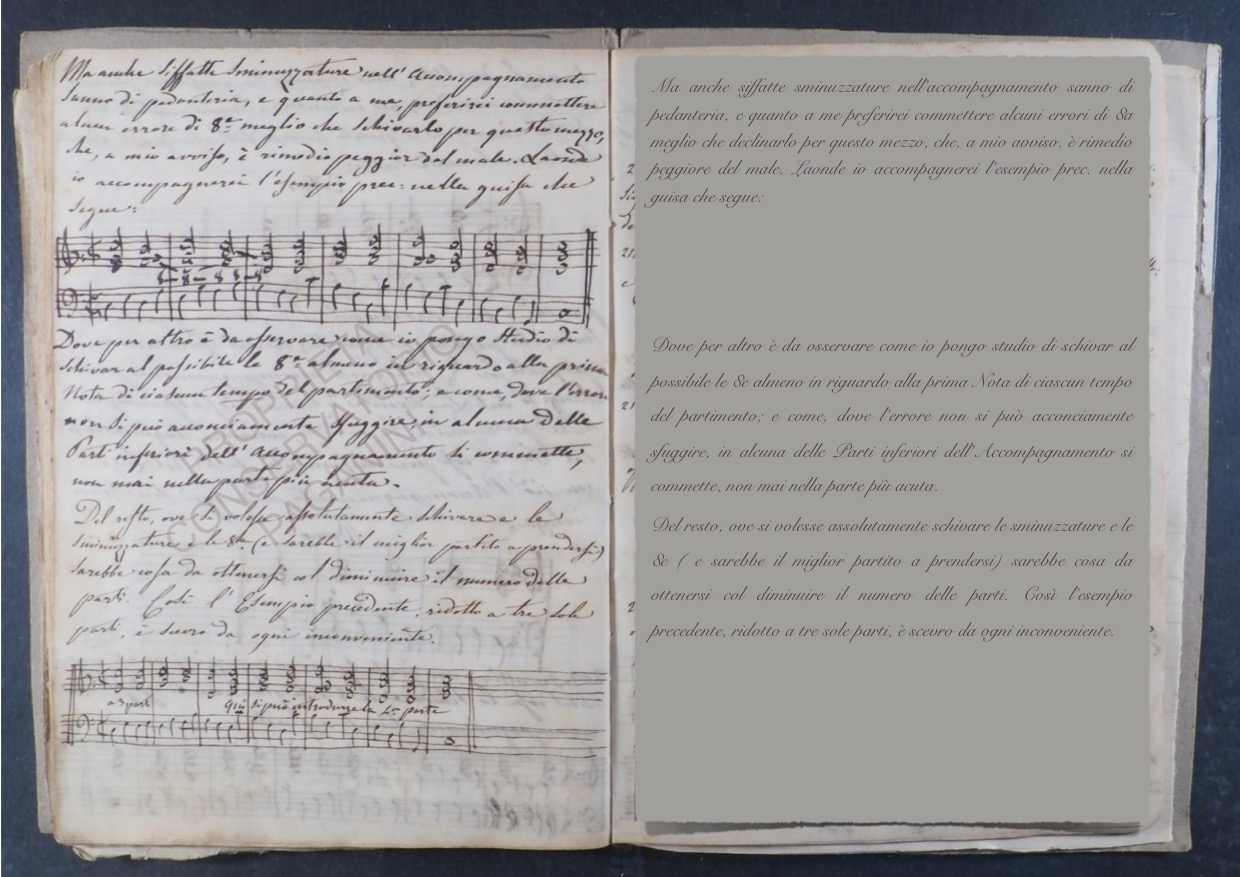 Ma anche siffatte sminuzzature nell'accompagnamento
sanno di pedanteria, e quanto a me, preferirei commettere
alcun errore di 8ª meglio che schivarlo per questo mezzo,
che, a mio avviso, è rimedio peggior del male. Laonde
io accompagnerei l'esempio prec: nella guisa che
segue:
8 - 8 - 8 8 - 8
Dove per altro è da osservare come io pongo studio di
schivar al possibile le 8ᵉ almeno in riguardo alla prima
Nota di ciascun tempo del partimento; e come, dove l'errore
non si può acconciamente sfuggire, in alcuna delle
Parti inferiori dell'Accompagnamento si commette,
non mai nella parte più acuta.
Del resto, ove si volesse assolutamente schivare le
sminuzzature e le 8ᵉ (e sarebbe il miglior partito a prendersi)
sarebbe cosa da ottenersi col diminuire il numero delle
parti. Così l'Esempio precedente, ridotto a tre sole
parti, è scevro da ogni inconveniente.
a 3 parti
Qui si può introdurre la 4ª parte
PROPRIETÀ
CONSERVATORIO
PAGANINI
Ma anche siffatte sminuzzature nell'accompagnamento sanno di
pedanteria, e quanto a me preferirei commettere alcuni errori di 8a
meglio che declinarlo per questo mezzo, che, a mio avviso, è rimedio
peggiore del male. Laonde io accompagnerei l'esempio prec. nella
guisa che segue:
Dove per altro è da osservare come io pongo studio di schivar al
possibile le 8e almeno in riguardo alla prima Nota di ciascun tempo
del partimento; e come, dove l'errore non si può acconciamente
sfuggire, in alcuna delle Parti inferiori dell'Accompagnamento si
commette, non mai nella parte più acuta.
Del resto, ove si volesse assolutamente schivare le sminuzzature e le
8e ( e sarebbe il miglior partito a prendersi) sarebbe cosa da
ottenersi col diminuire il numero delle parti. Così l'esempio
precedente, ridotto a tre sole parti, è scevro da ogni inconveniente.